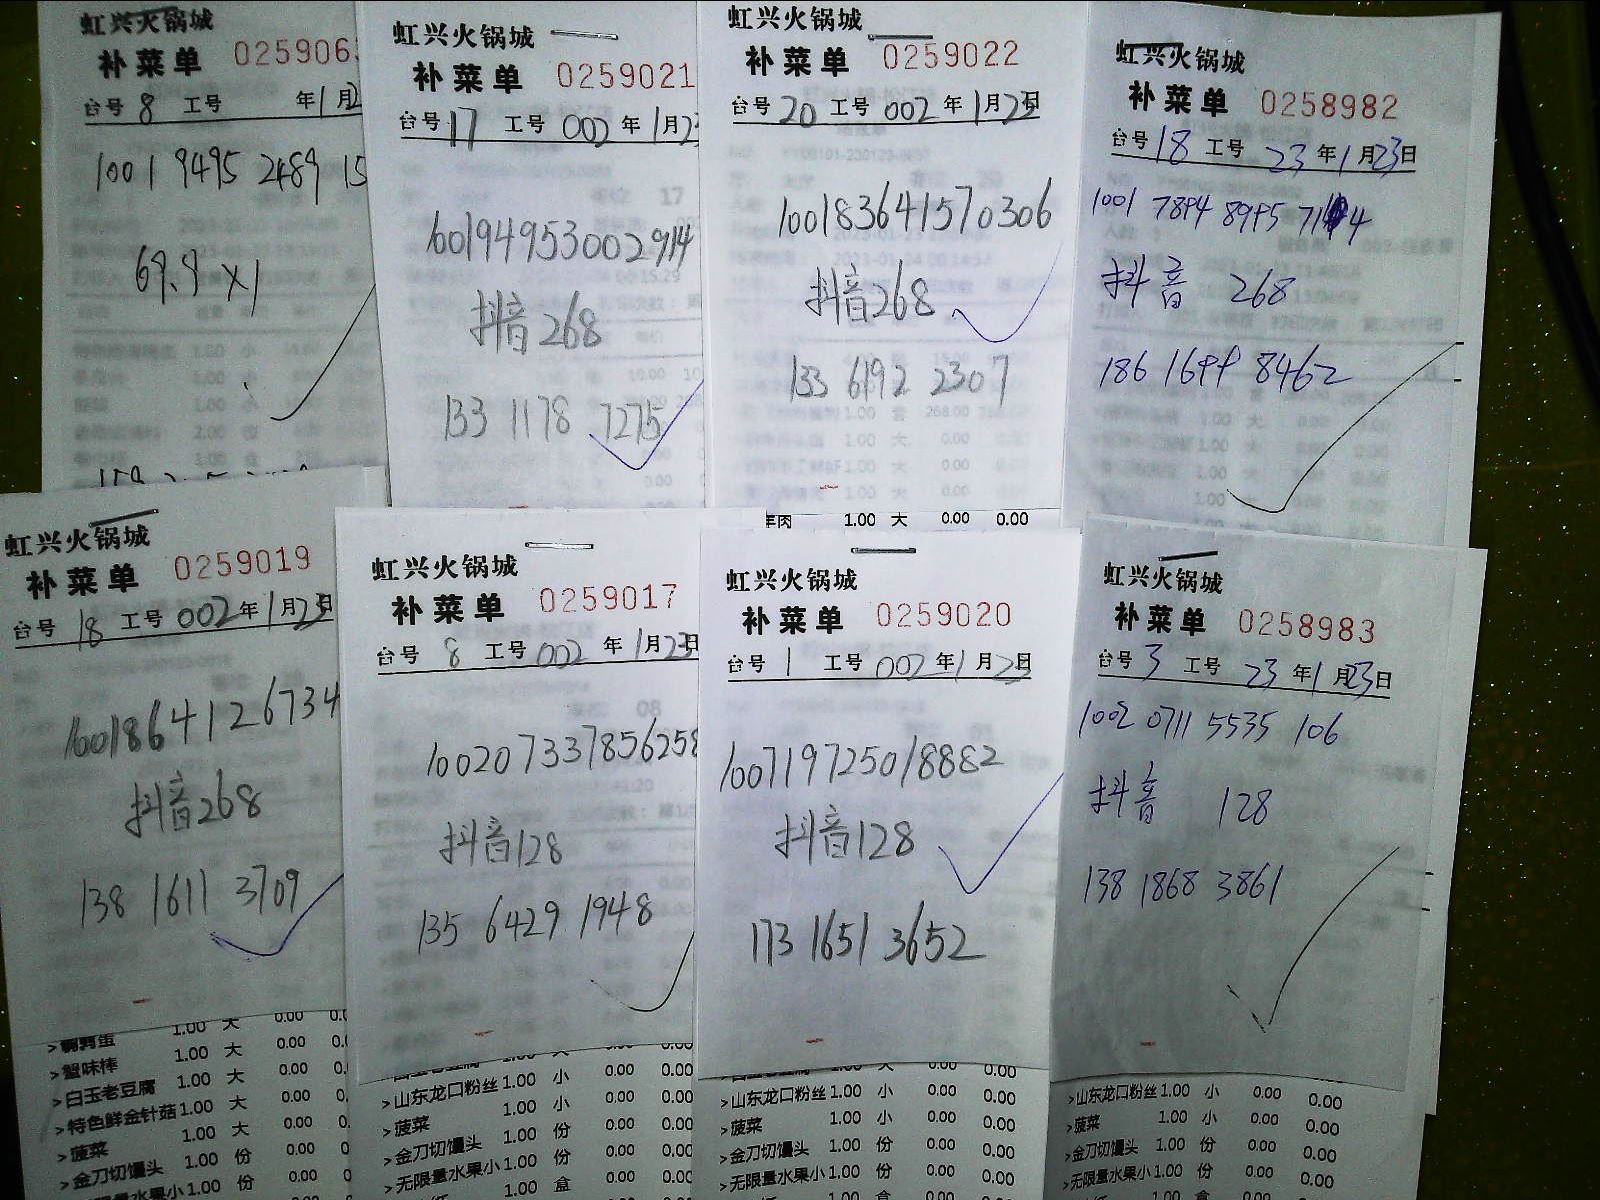 虹兴火锅城
补菜单 025906
台号 8 工号 年1月2
1001 9495 2489 15
69.9 X1
虹兴火锅城
补菜单 0259021
台号 17 工号 002 年1月23
100194953002914
抖音268
133 1178 7275
虹兴火锅城
补菜单 0259022
台号 20 工号 002 年1月23日
100183641570306
抖音268
133 6192 2307
羊肉 1.00 大 0.00 0.00
虹兴火锅城
补菜单 0258982
台号 18 工号 23年1月23日
1001 7894 8995 7114
抖音 268
186 1699 8462
虹兴火锅城
补菜单 0259019
台号 18 工号 002年1月23日
10018641126734
抖音268
138 1611 3709
1.00 大 0.00 0.0
>蟹味棒 1.00 大 0.00 0.
>白玉老豆腐 1.00 大 0.00 0.
>特色鲜金针菇 1.00 大 0.00 0.
>菠菜 1.00 大 0.00 0.
>金刀切馒头 1.00 份 0.00 0
无限量水果小 1.00 份 0.00 0
虹兴火锅城
补菜单 0259017
台号 8 工号 002 年1月23日
100207337856258
抖音128
135 6429 1948
>山东龙口粉丝 1.00 小 0.00 0.00
>菠菜 1.00 小 0.00 0.00
>金刀切馒头 1.00 份 0.00 0.00
>无限量水果小 1.00 份 0.00 0.00
1.00 盒 0.00 0.00
虹兴火锅城
补菜单 0259020
台号 1 工号 002年1月23日
100719725018882
抖音128
173 1651 3652
>山东龙口粉丝 1.00 小 0.00 0.00
>菠菜 1.00 小 0.00 0.00
>金刀切馒头 1.00 份 0.00 0.00
>无限量水果小 1.00 份 0.00 0.00
虹兴火锅城
补菜单 0258983
台号 3 工号 23年1月23日
1002 0711 5535 106
抖音 128
138 1868 3861
>山东龙口粉丝 1.00 小 0.00 0.00
>菠菜 1.00 小 0.00 0.00
>金刀切馒头 1.00 份 0.00 0.00
>无限量水果小 1.00 份 0.00 0.00